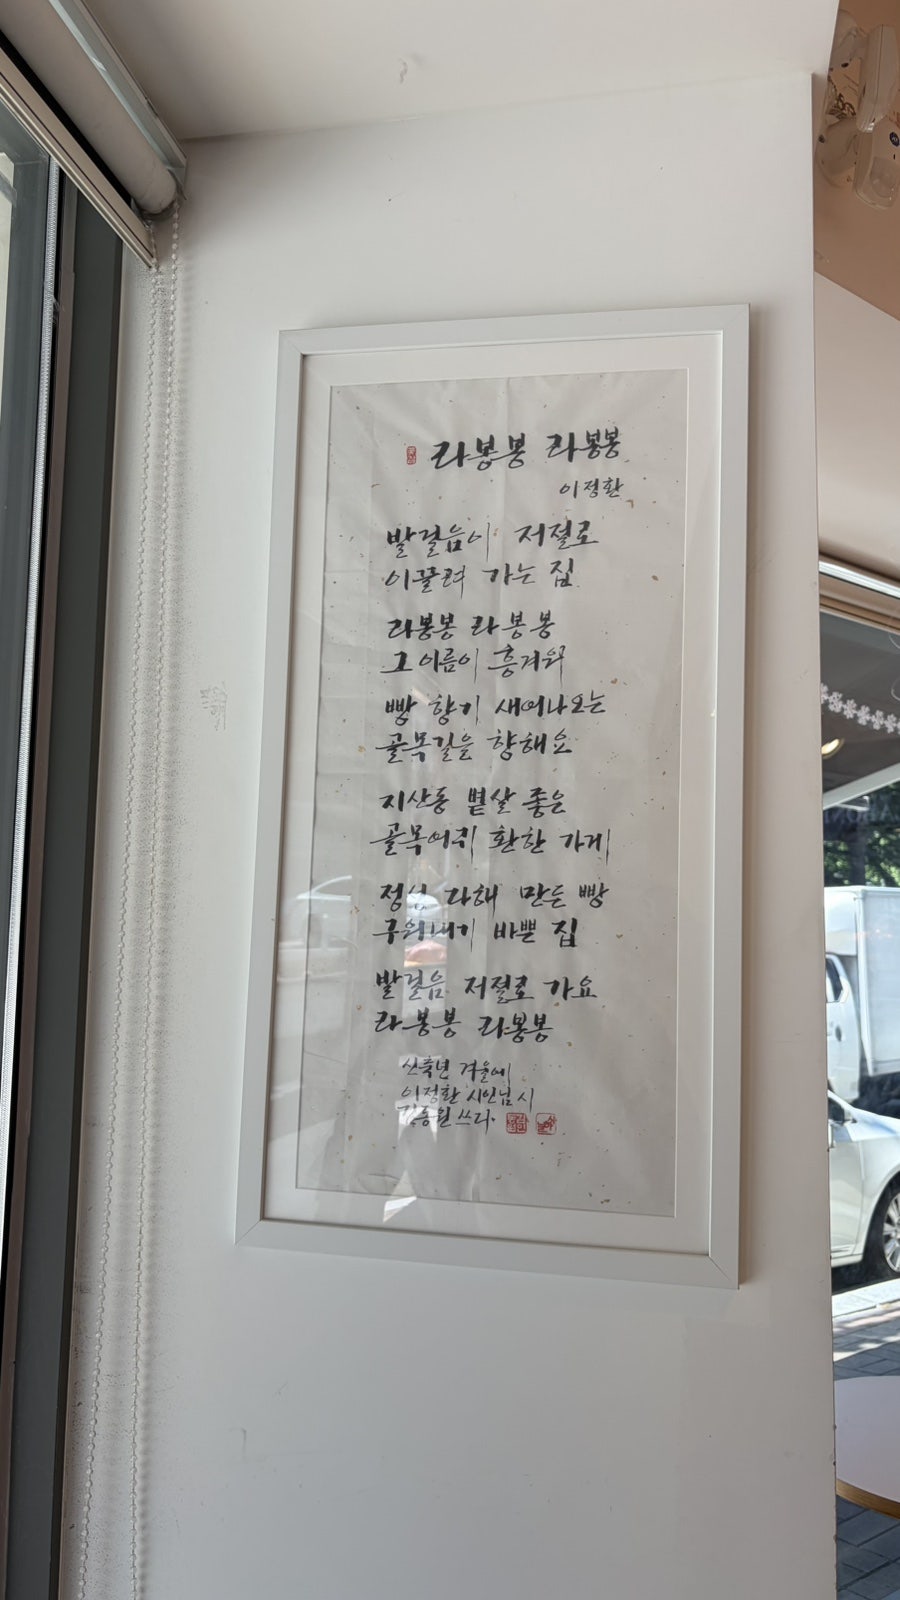 라봉봉 라봉봉
이정환
발걸음이 저절로
이끌려 가는 집
라봉봉 라봉봉
그 이름이 흥겨워
빵 향기 새어나오는
골목길을 향해요
지산동 볕살 좋은
골목어귀 환한 가게
정성 다해 만든 빵
구워내기 바쁜 집
발걸음 저절로 가요
라봉봉 라봉봉
신축년 겨울에
이정환 시인님 시
쓰다.